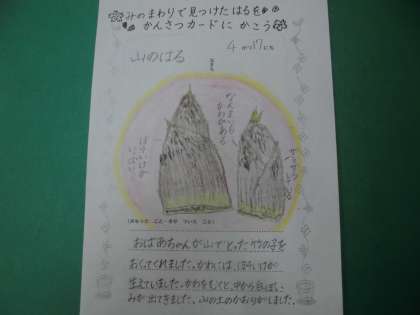 みのまわりで見つけたはるを
かんさつカードにかこう
4がつ17にち
山のはる
なんまいもかわがある
(みつけた こと・きが ついた こと)
おばあちゃんが山でとった竹の子を
おくってくれました。かわには、ほそいけが
生えていました。かわをむくと、中から白っぽい
みが出てきました。山の土のかおりがしました。